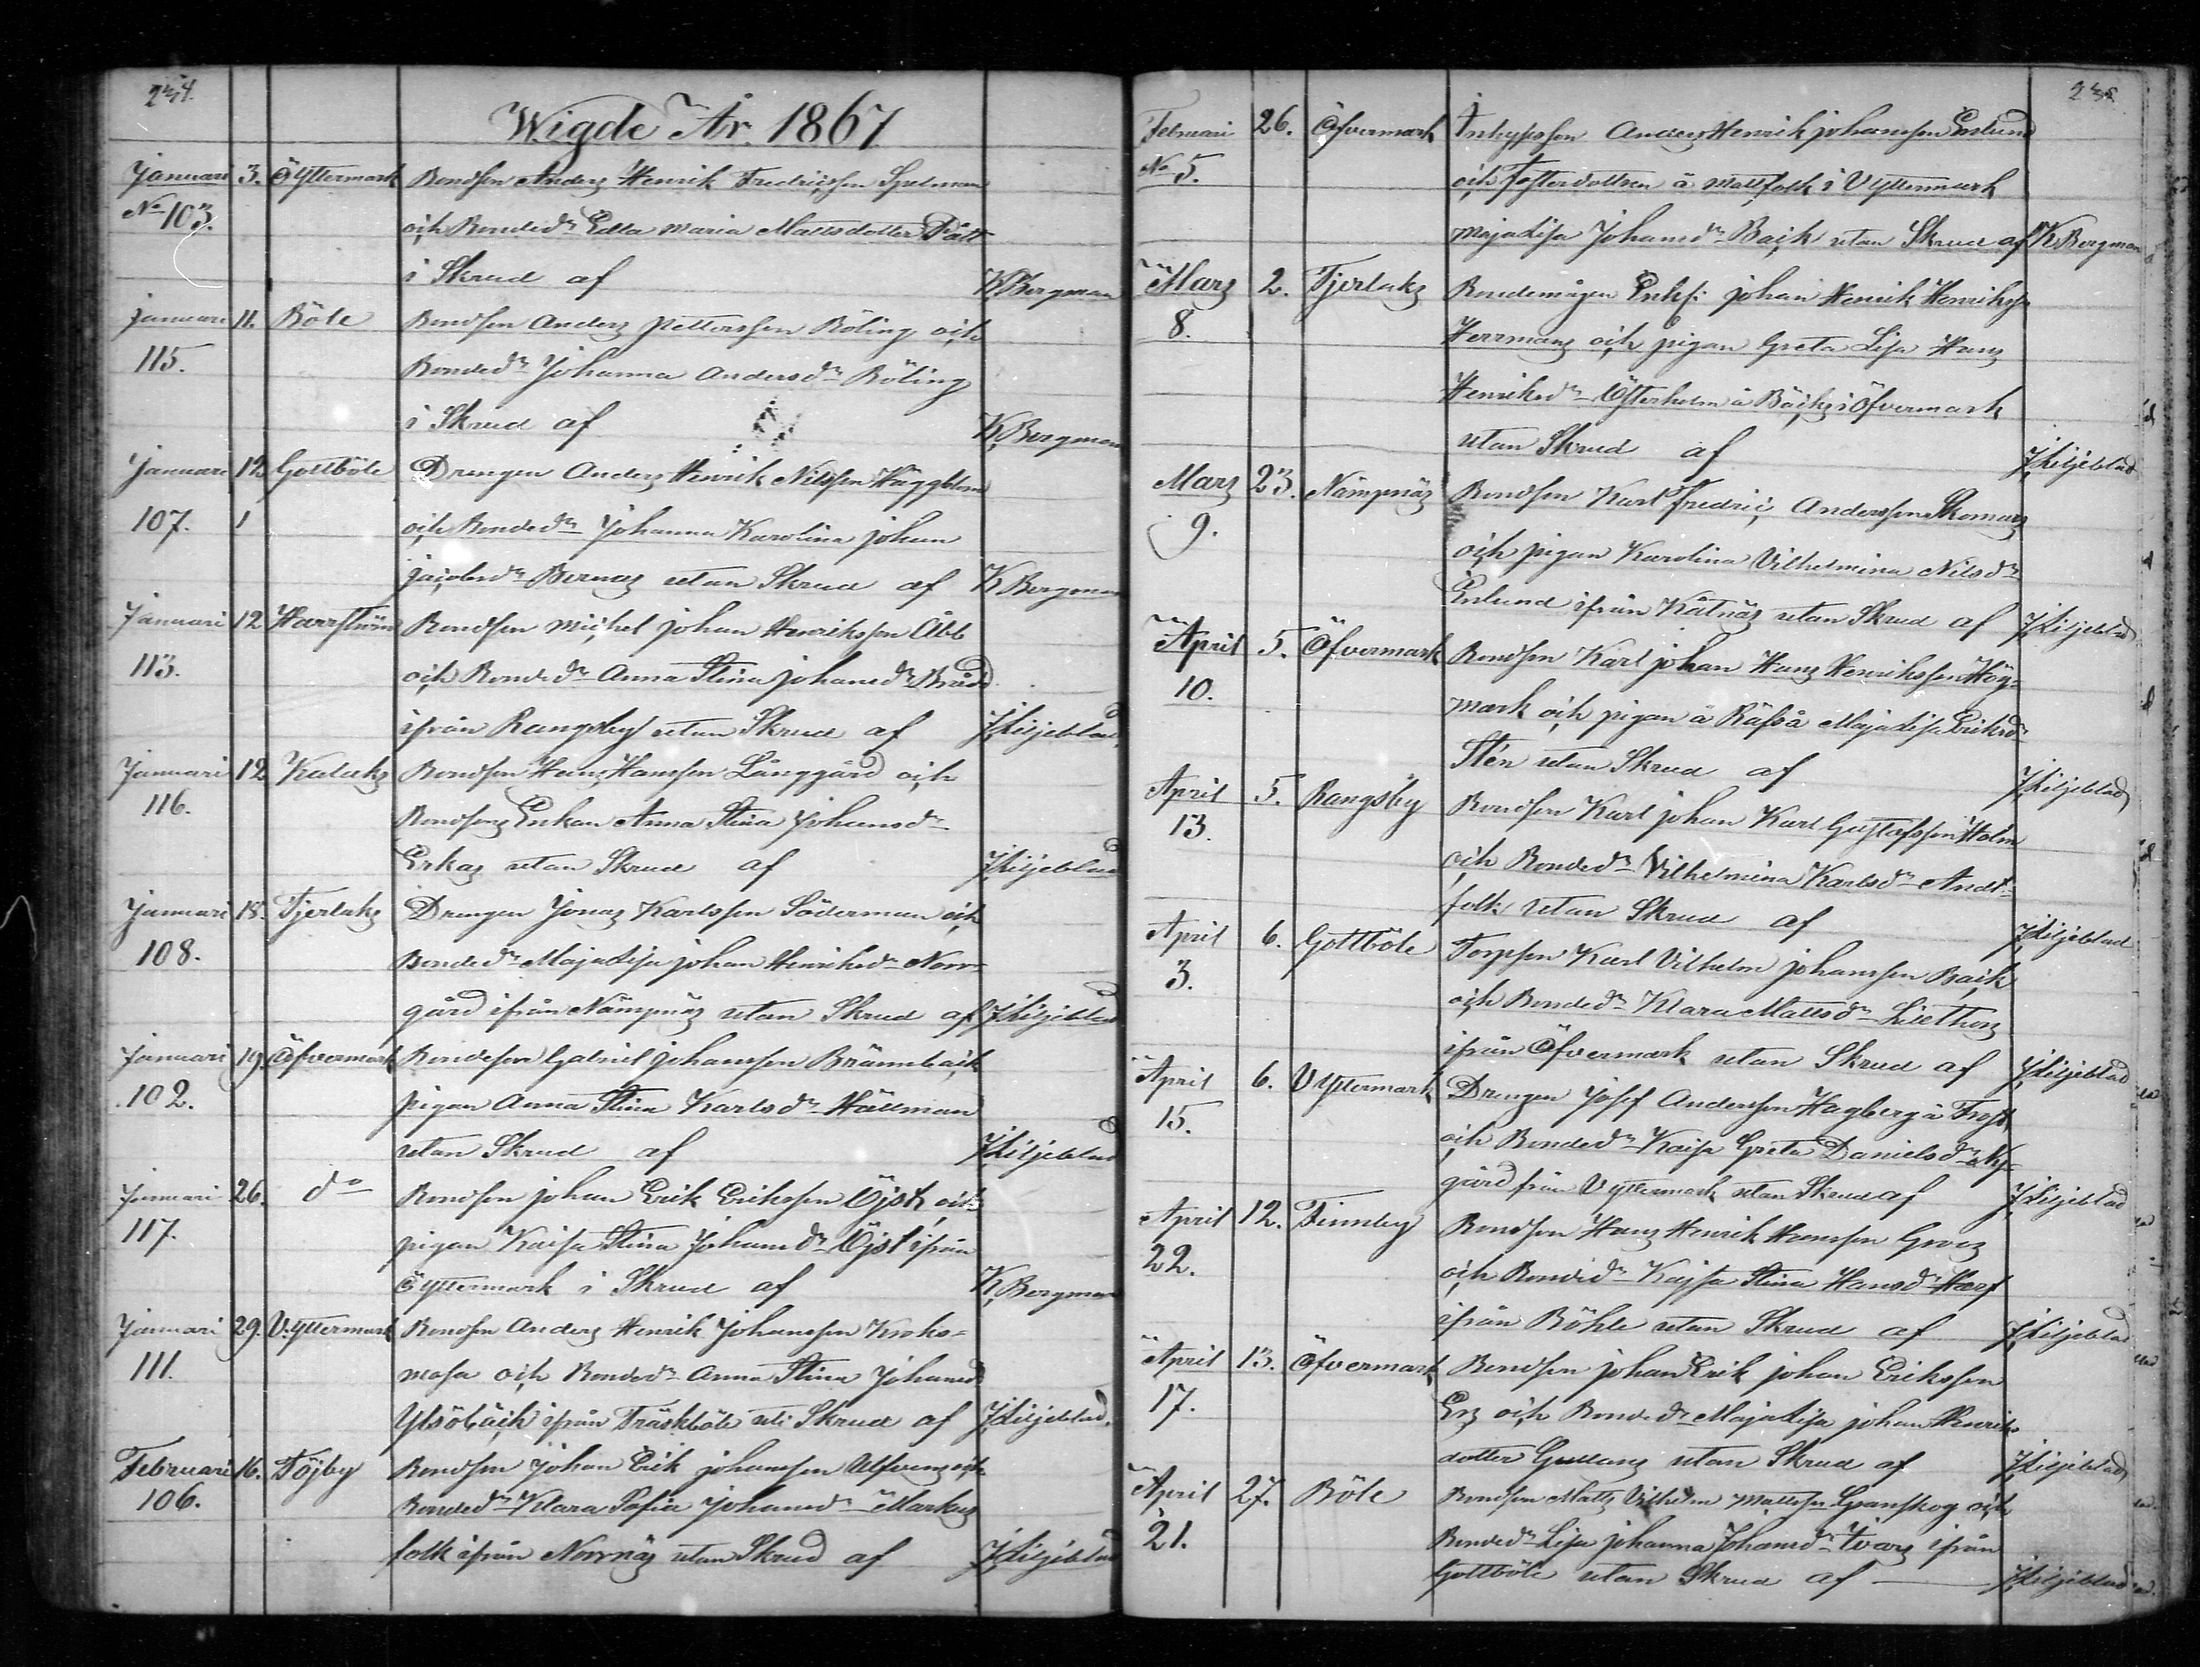 234.
Wigde År 1867
Januari 3. Öyttermark Bondson Anders Henrik Fredricsson Spelman
No 103. och Bonded:r Edla Maria Mattsdotter Pått
i Skrud af K, Bergman
Januari 11. Böle Bondson Anders Pettersson Böling och
115. Bonded:r Johanna Andersd:r Böling
i Skrud af K, Bergman
Januari 12 Gottböle Drengen Anders Henrik Nilsson Häggblom
107. 1 och Bonded:r Johanna Karolina Johan
Jacobsd:r utan Skrud af K Bergman
Januari 12 Harrström Bondson Michel Johan Henriksson Åbb
113. och Bonded:r Anna Stina Johansd:r
ifrån Rangsby utan Skrud af J, Liljeblad
Januari 12 Kalaks Bondson Hans Hansson Långgård och
116. Bondsons Enkan Anna Stina Johansd:r
Erkas utan Skrud af J, Liljeblad
Januari 18. Tjerlaks Drengen Jonas Karlsson Söderman och
108. Bonded:r Maja Lisa Johan Henriksd:r Norr-
gård ifrån Nämpnäs utan Skrud af J, Liljeblad
Januari 19. Öfvermark Bondeson Gabriel Johansson Brännback
102. pigan Anna Stina Karlsd:r Hällman
utan Skrud af J, Liljeblad
Januari 26. d:o Bondson Johan Erik Eriksson Öjst och
117. pigan Kaisa Stina Johansd:r Öjst ifrån
Öyttermark i Skrud af K, Bergman
Januari 29. V.yttermark Bondson Anders Henrik Johansson Kroks-
111. masa och Bonded:r Anna Stina Johansd
Ylsöbäck ifrån Träskböle uti Skrud af J, Liljeblad.
Februari 16. Töjby Bondson Johan Erik Johansson och
106. Bonded:r Klara Sofia Johansd:r Markus
folk ifrån Norrnäs utan Skrud af J, Liljeblad
Februari 26. Öfvermark Inhysson Anders Henrik Johansson Enlund
No 5. och Fosterdottren å Mattfolk i V yttermark
Maja Lisa Johansd:r Back utan Skrud af K, Bergman
Mars 2. Tjerlaks Bondemågen Enkf: Johan Henrik Henriks
8. Herrmans och pigan Greta Lisa Hans
Henriksd:r Österholm å Bäcks i Öfvermark
utan Skrud af J, Liljeblad
Mars 23. Nämpnäs Bondson Karl Fredric Andersson Skomars
9. och pigan Karolina Vilhelmina Nilsd:r
Enlund ifrån Kåtnäs utan Skrud af J, Liljeblad
April 5. Öfvermark Bondson Karl Johan Hans Henriksson Hög-
10. mark och pigan å Räfså Maja Lisa Eriksd:r
Stén utan Skrud af J, Liljeblad
April 5. Rangsby Bondson Karl Johan Karl Gustafsson Holm
13. och Bonded:r Vilhelmina Karlsd:r Andt-
folk utan Skrud af J, Liljeblad
April 6. Gottböle Torpson Karl Vilhelm Johansson Back
3. och Bonded:r Klara Mattsd:r Lillthors
ifrån Öfvermark utan Skrud af J, Liljeblad
April 6. V yttermark Drengen Josef Andersson Hagberg å Frost
15. och Bonded:r Kaisa Greta Danielsd:r Ny-
gård från V yttermark utan Skrud af J, Liljeblad
April 12. Finnby Bondson Hans Henrik Hansson Groos
22. och Bonded:r Kajsa Stina Hansd:r Harf
ifrån Böhle utan Skrud af J, Liljeblad
April 13. Öfvermark Bondson Johan Erik Johan Eriksson
17. Ers och Bonded:r Maja Lisa Johan Henriks
dotter Gullans utan Skrud af J, Liljeblad
April 27. Böle Bondson Matts Vilhelm Mattsson Granskog och
21. Bonded:r Lisa Johanna Johansd:r Ivars ifrån
Gottböle utan Skrud af J, Liljeblad